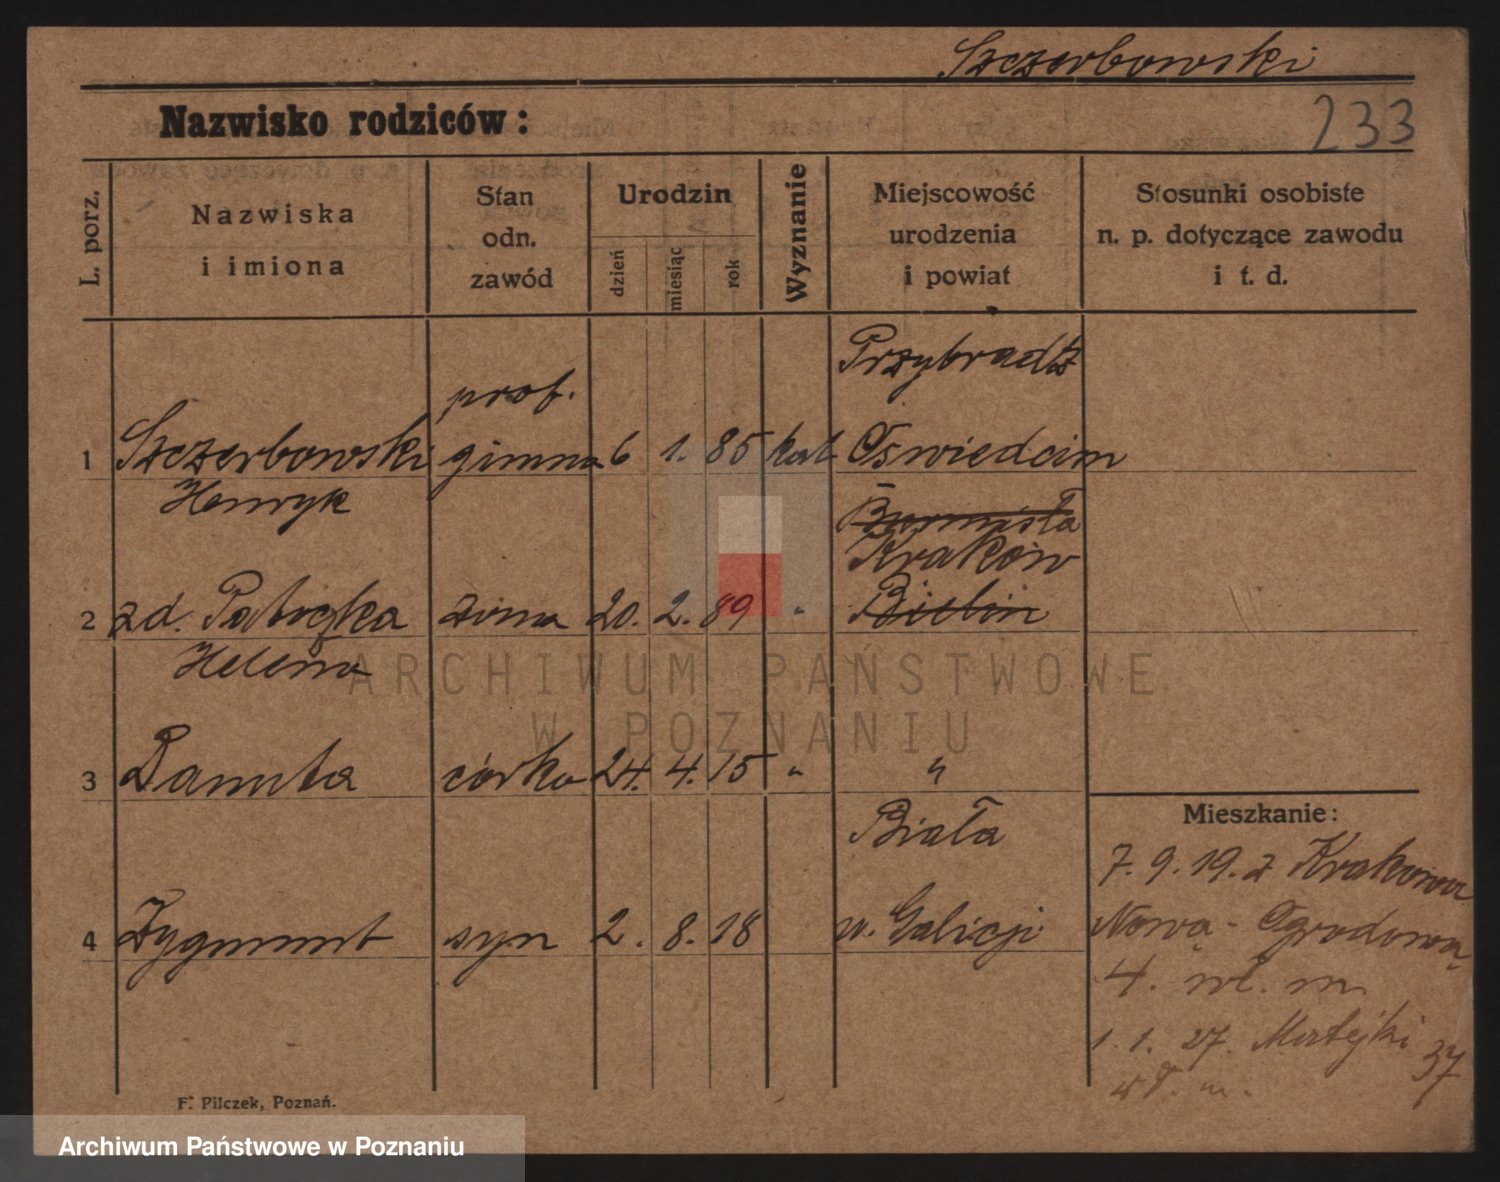 Szczerbowski
Nazwisko rodziców:
233
L. porz.
Nazwiska
i imiona
Stan
odn.
zawód
Urodzin
dzień
miesiąc
rok
Wyznanie
Miejscowość
urodzenia
i powiat
Stosunki osobiste
n. p. dotyczące zawodu
i t. d.
prof.
Przybradz
1 Szczerbowski gimna 6 1. 85 kat Oświedcim
Henryk
Kraków
2 zd. żona 20. 2. 89 " Bielin
Helena
3 Danuta córka 24. 4. 15 " "
Biała
4 Zygmunt syn 2. 8. 18 w. Galicji
Mieszkanie:
7. 9. 19. z Krakowa
Nowa-Ogrodowa
4. wł. m.
1. 1. 27. Matejki 37
wł. m.
F. Pilczek, Poznań.
ARCHIWUM PAŃSTWOWE
W POZNANIU
Archiwum Państwowe w Poznaniu